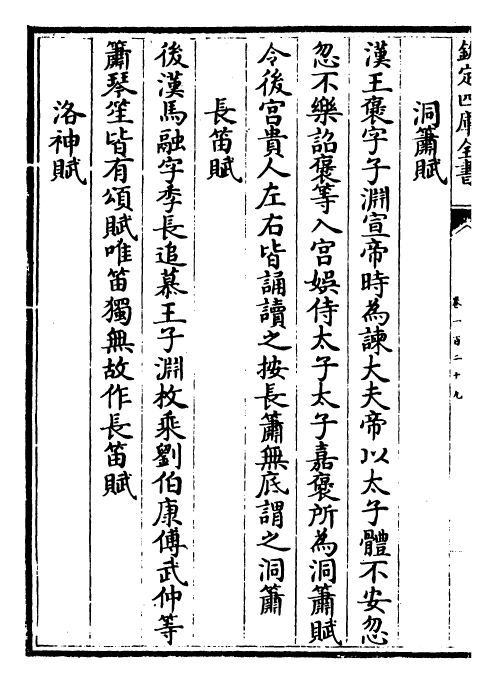 欽定四庫全書
卷一百二十九
洞簫賦
漢王褒字子淵宣帝時為諫大夫帝以太子體不安忽
忽不樂詔褒等入宮娛侍太子太子嘉褒所為洞簫賦
令後宮貴人左右皆誦讀之按長簫無底謂之洞簫
長笛賦
後漢馬融字季長追慕王子淵枚乘劉伯康傅武仲等
簫琴笙皆有頌賦唯笛獨無故作長笛賦
洛神賦